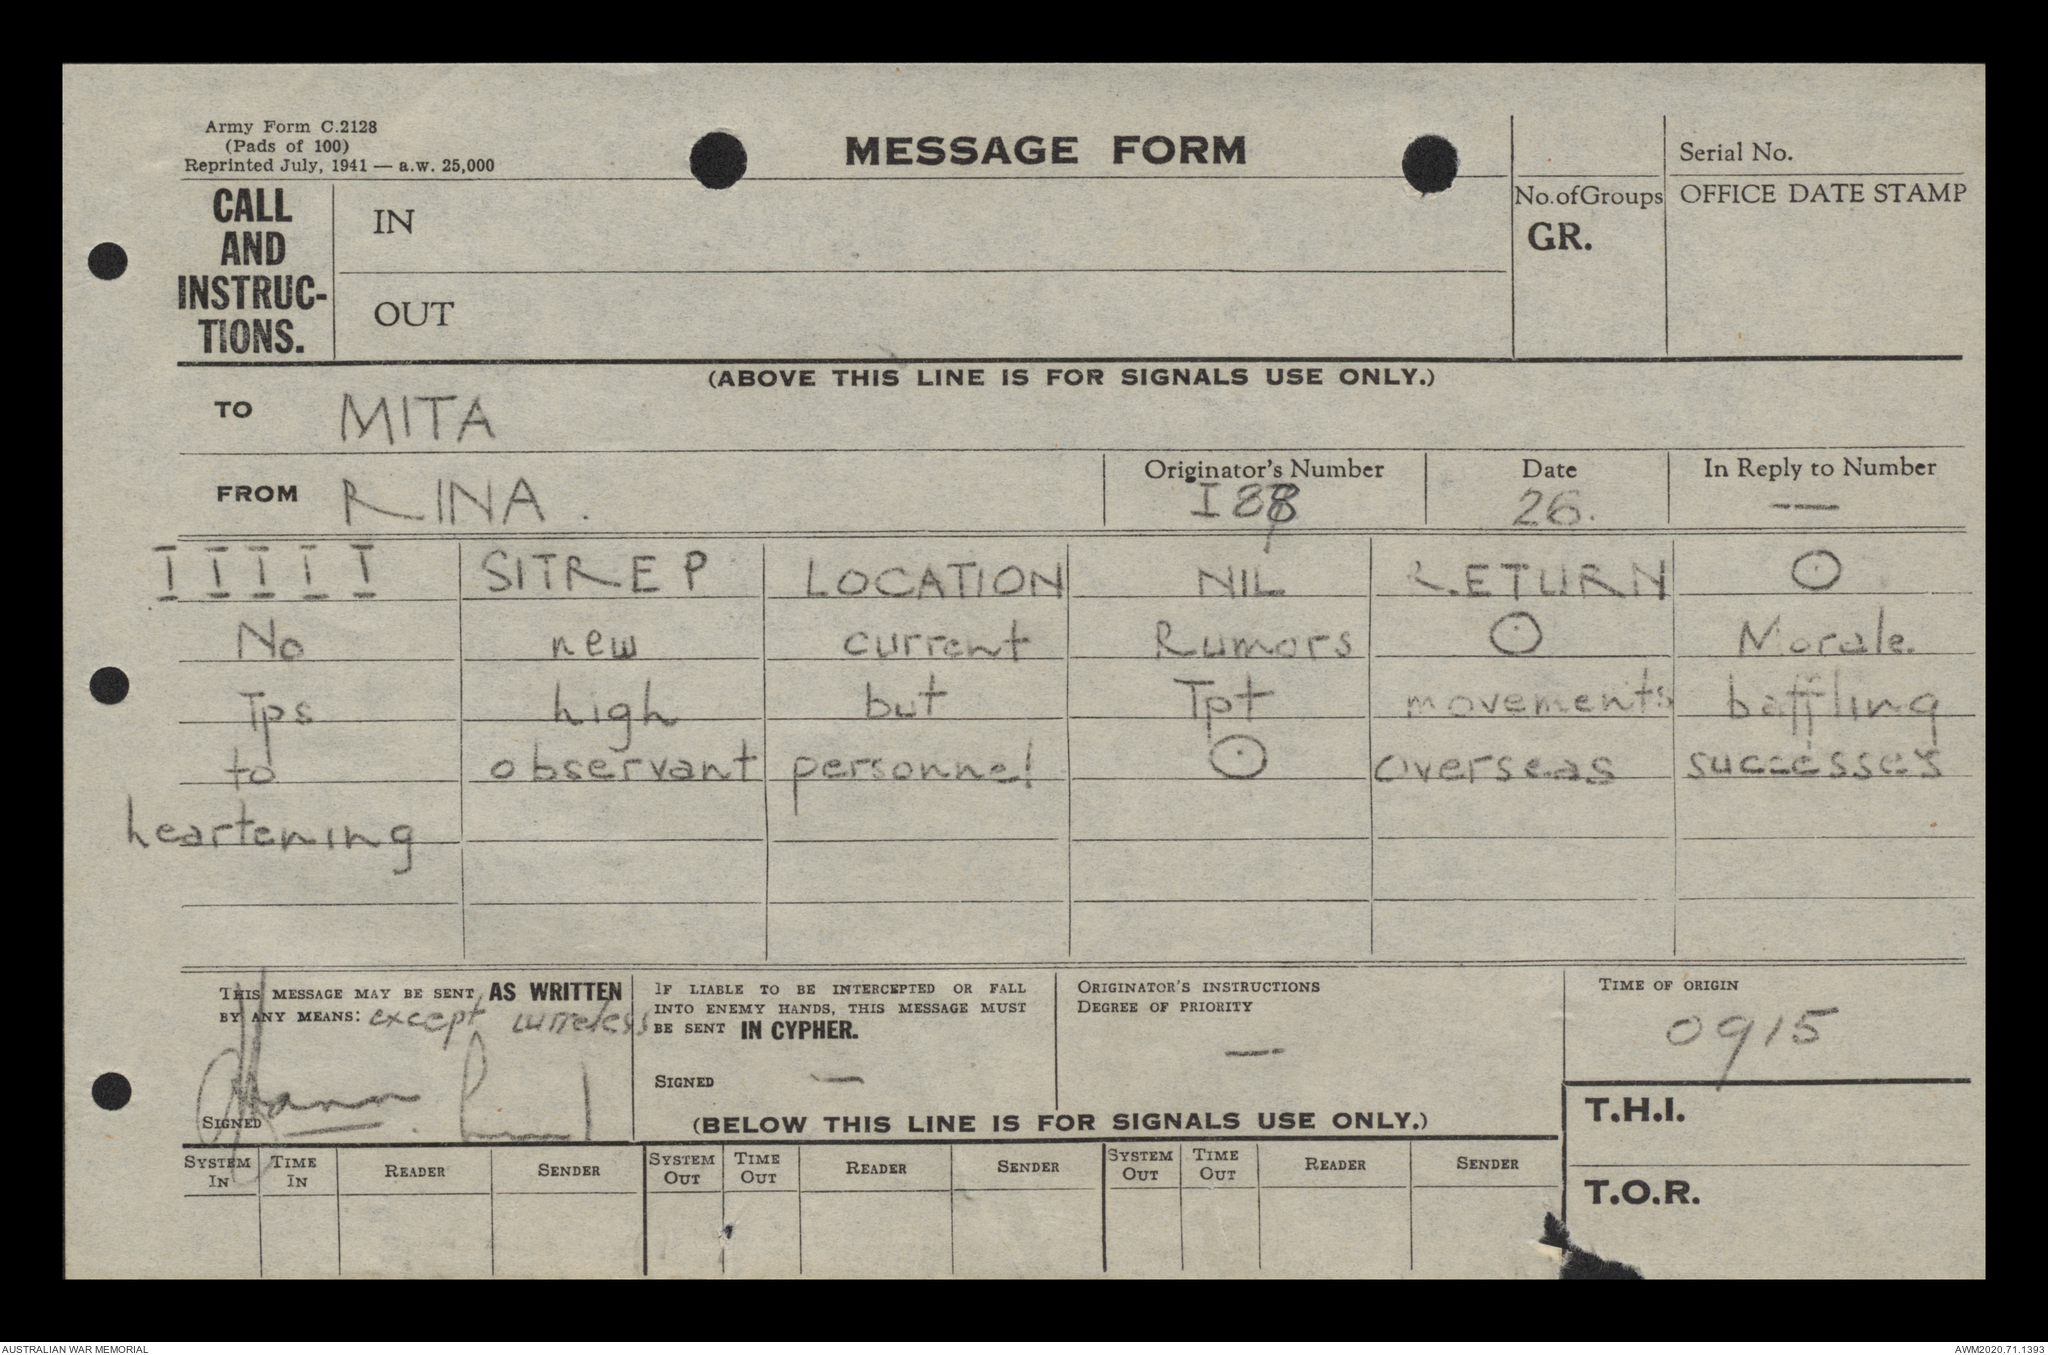 Army Form C.2128
(Pads of 100)
Reprinted July, 1941 — a.w. 25,000
MESSAGE FORM
Serial No.
CALL AND INSTRUC-TIONS.
IN
No. of Groups
GR.
OFFICE DATE STAMP
OUT
(ABOVE THIS LINE IS FOR SIGNALS USE ONLY.)
TO MITA
FROM RINA.
Originator's Number
I 88
Date
26.
In Reply to Number
—
I I I I I SITREP LOCATION NIL RETURN ⊙
No new current Rumors ⊙ Morale
Tps high but Tpt movements baffling
to observant personnel ⊙ overseas successes
heartening
THIS MESSAGE MAY BE SENT AS WRITTEN
BY ANY MEANS: except wireless
SIGNED
IF LIABLE TO BE INTERCEPTED OR FALL
INTO ENEMY HANDS, THIS MESSAGE MUST
BE SENT IN CYPHER.
SIGNED —
ORIGINATOR'S INSTRUCTIONS
DEGREE OF PRIORITY
—
TIME OF ORIGIN
0915
(BELOW THIS LINE IS FOR SIGNALS USE ONLY.)
T.H.I.
T.O.R.
SYSTEM IN TIME IN READER SENDER SYSTEM OUT TIME OUT READER SENDER SYSTEM OUT TIME OUT READER SENDER
AUSTRALIAN WAR MEMORIAL
AWM2020.71.1393